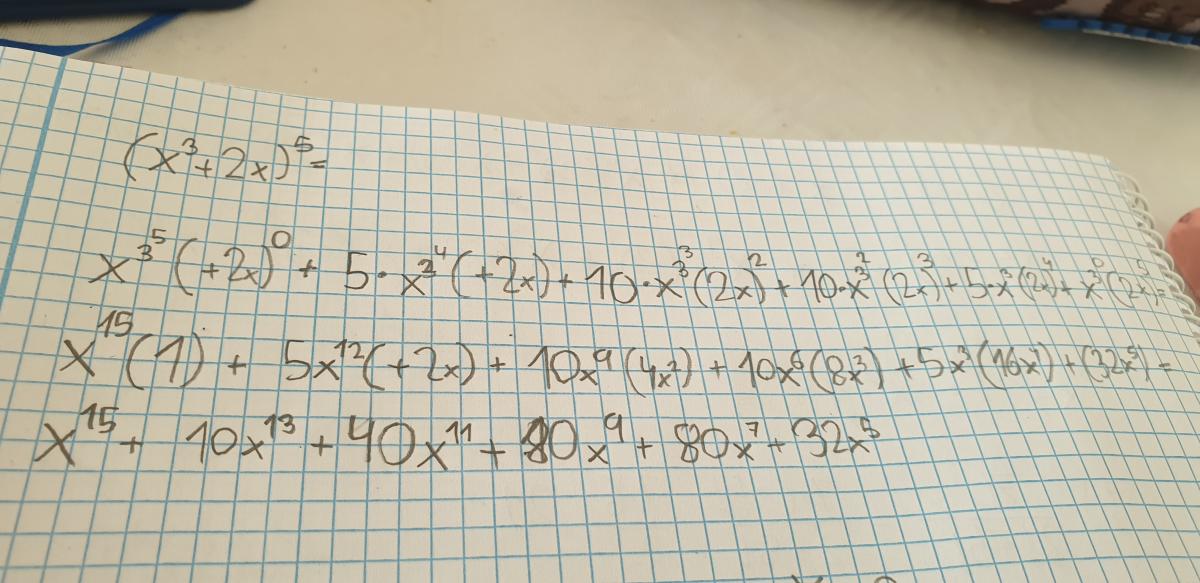 (x³+2x)⁵=
x^3^5 (+2x)^0 + 5·x^3^4 (+2x) + 10·x^3^3 (2x)^2 + 10·x^3^2 (2x)^3 + 5·x^3 (2x)^4 + x^3^0 (2x)^5 =
x^15 (1) + 5x^12 (+2x) + 10x^9 (4x^2) + 10x^6 (8x^3) + 5x^3 (16x^4) + (32x^5) =
x^15 + 10x^13 + 40x^11 + 80x^9 + 80x^7 + 32x^5